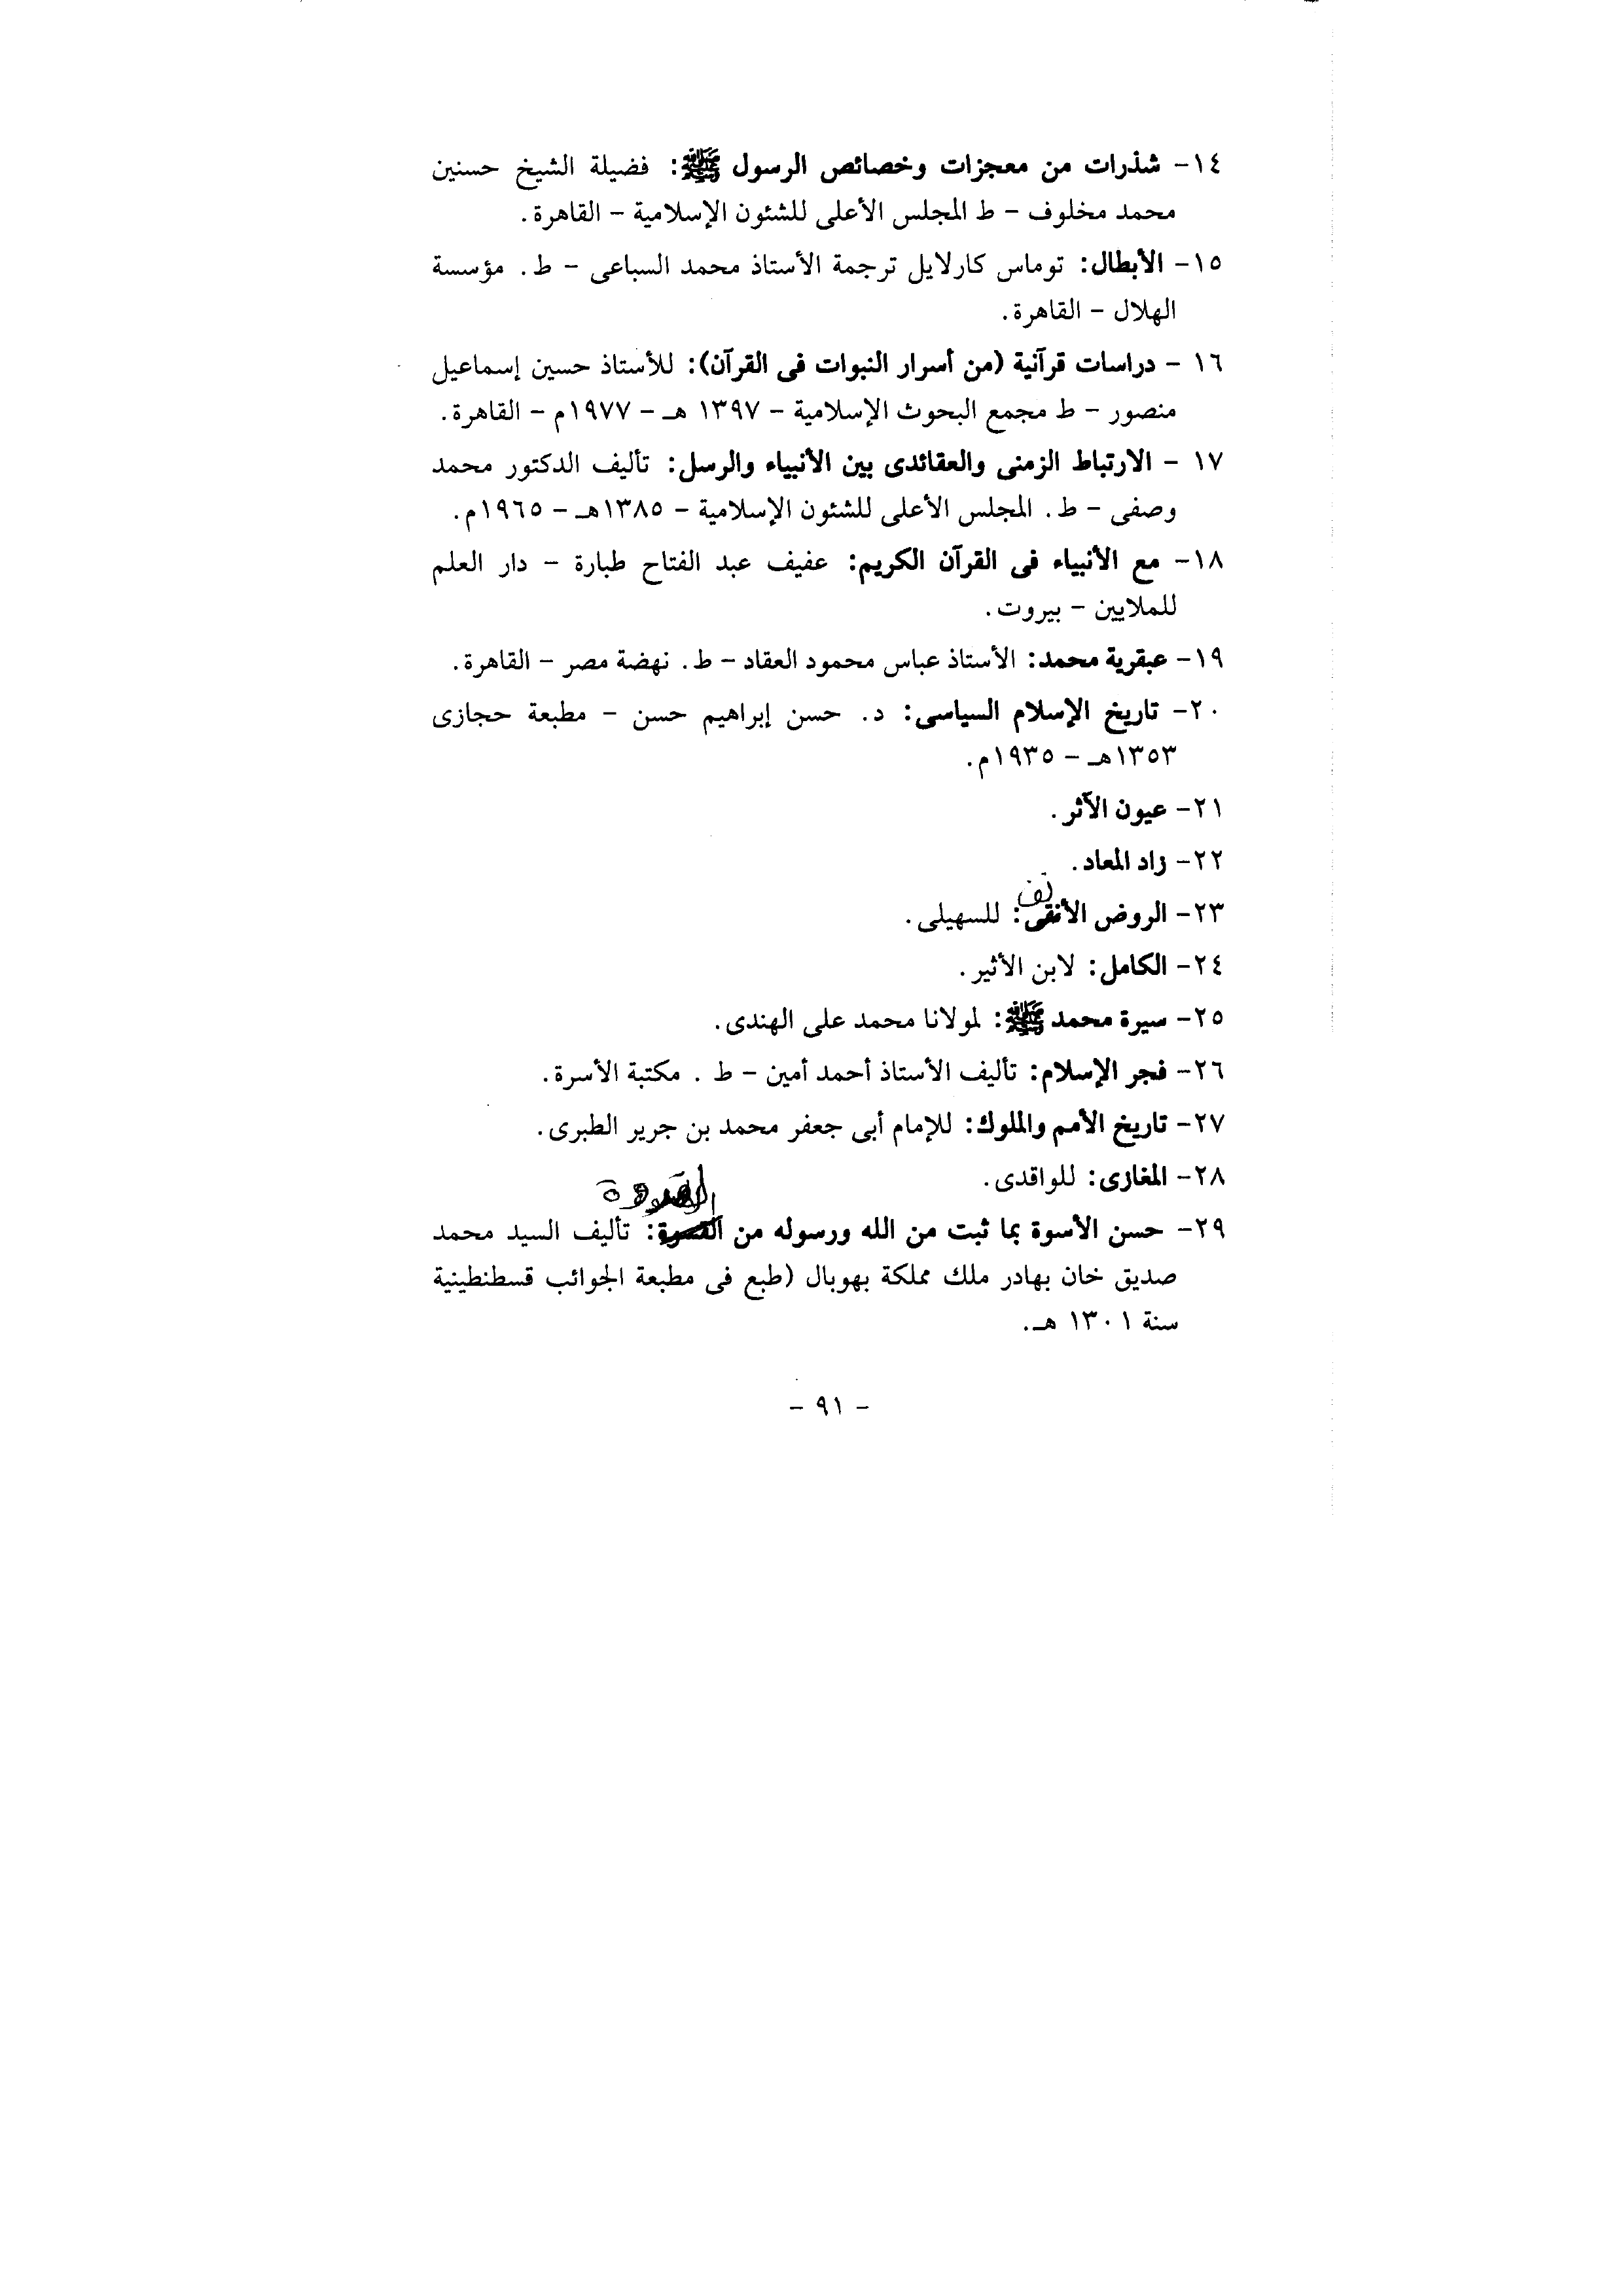 ١٤- شذرات من معجزات وخصائص الرسول ﷺ: فضيلة الشيخ حسنين
محمد مخلوف - ط المجلس الأعلى للشئون الإسلامية - القاهرة.
١٥- الأبطال: توماس كارلايل ترجمة الأستاذ محمد السباعى - ط. مؤسسة
الهلال - القاهرة.
١٦ - دراسات قرآنية (من أسرار النبوات فى القرآن): للأستاذ حسين إسماعيل
منصور - ط مجمع البحوث الإسلامية - ١٣٩٧ هـ - ١٩٧٧م - القاهرة.
١٧ - الارتباط الزمنى والعقائدى بين الأنبياء والرسل: تأليف الدكتور محمد
وصفى - ط. المجلس الأعلى للشئون الإسلامية - ١٣٨٥هـ - ١٩٦٥م.
١٨- مع الأنبياء فى القرآن الكريم: عفيف عبد الفتاح طبارة - دار العلم
للملايين - بيروت.
١٩- عبقرية محمد: الأستاذ عباس محمود العقاد - ط. نهضة مصر - القاهرة.
٢٠- تاريخ الإسلام السياسى: د. حسن إبراهيم حسن - مطبعة حجازى
١٣٥٣هـ - ١٩٣٥م.
٢١- عيون الآثر.
٢٢- زاد المعاد.
نف
٢٣- الروض الأنقى: للسهيلى.
٢٤- الكامل: لابن الأثير.
٢٥- سيرة محمد ﷺ: لمولانا محمد على الهندى.
٢٦- فجر الإسلام: تأليف الأستاذ أحمد أمين - ط . مكتبة الأسرة.
٢٧- تاريخ الأمم والملوك: للإمام أبى جعفر محمد بن جرير الطبرى.
٢٨- المغازى: للواقدى.
٢٩- حسن الأسوة بما ثبت من الله ورسوله من: تأليف السيد محمد
صديق خان بهادر ملك مملكة بهوبال (طبع فى مطبعة الجوائب قسطنطينية
سنة ١٣٠١ هـ.
- ٩١ -